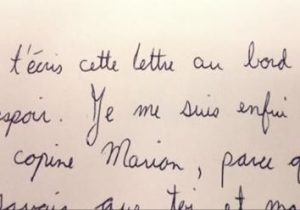 t'écris cette lettre au bord
espoir. Je me suis enfui
copine Marion, parce q
savais que toi et mo